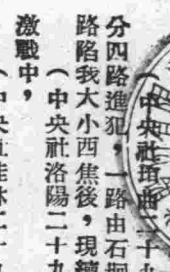 （中央社垣曲二十
分四路進犯，一路由石
路陷我大小西焦後，現續
（中央社洛陽二十九
激戰中，
（中央社桂林二十九